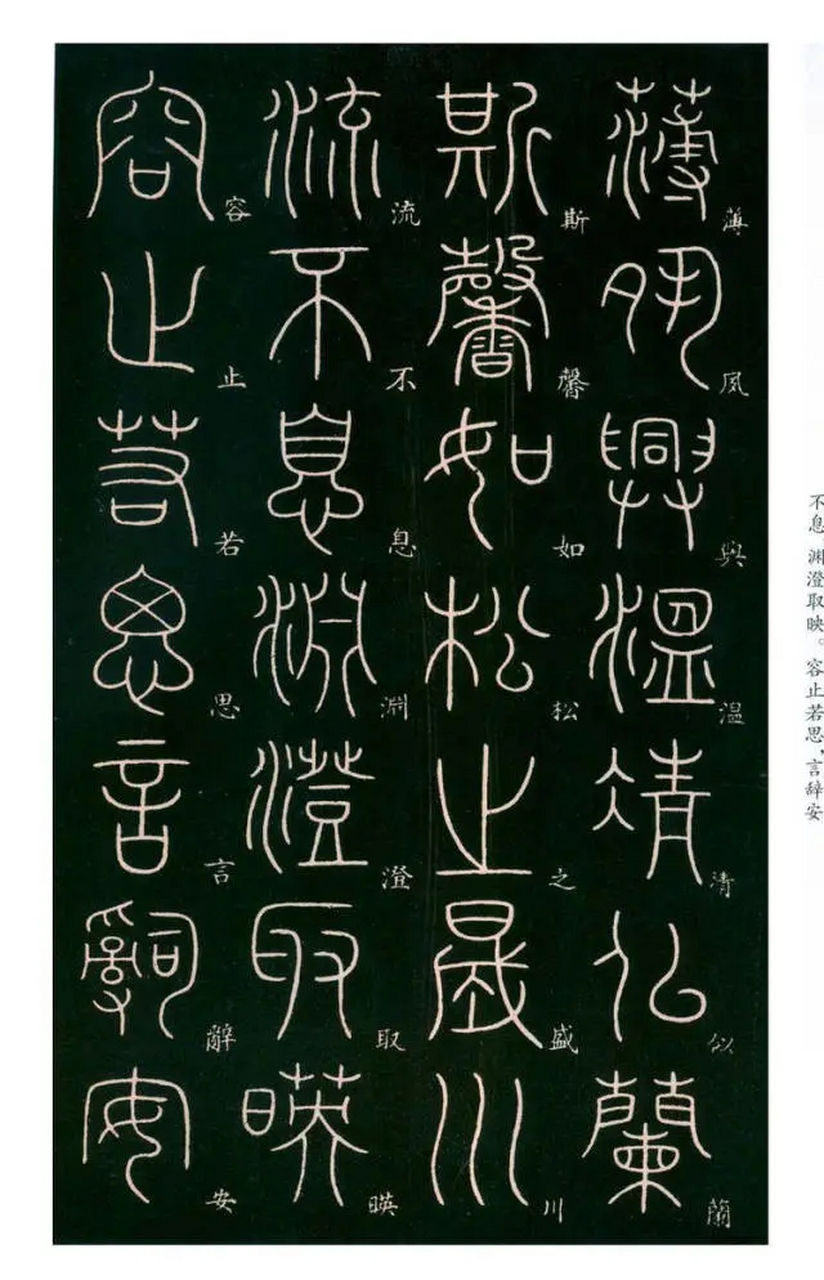 不息 渊澄取映。容止若思，言辞安
薄夙興温清似蘭
斯馨如松之盛川
流不息淵澄取暎
容止若思言辭安